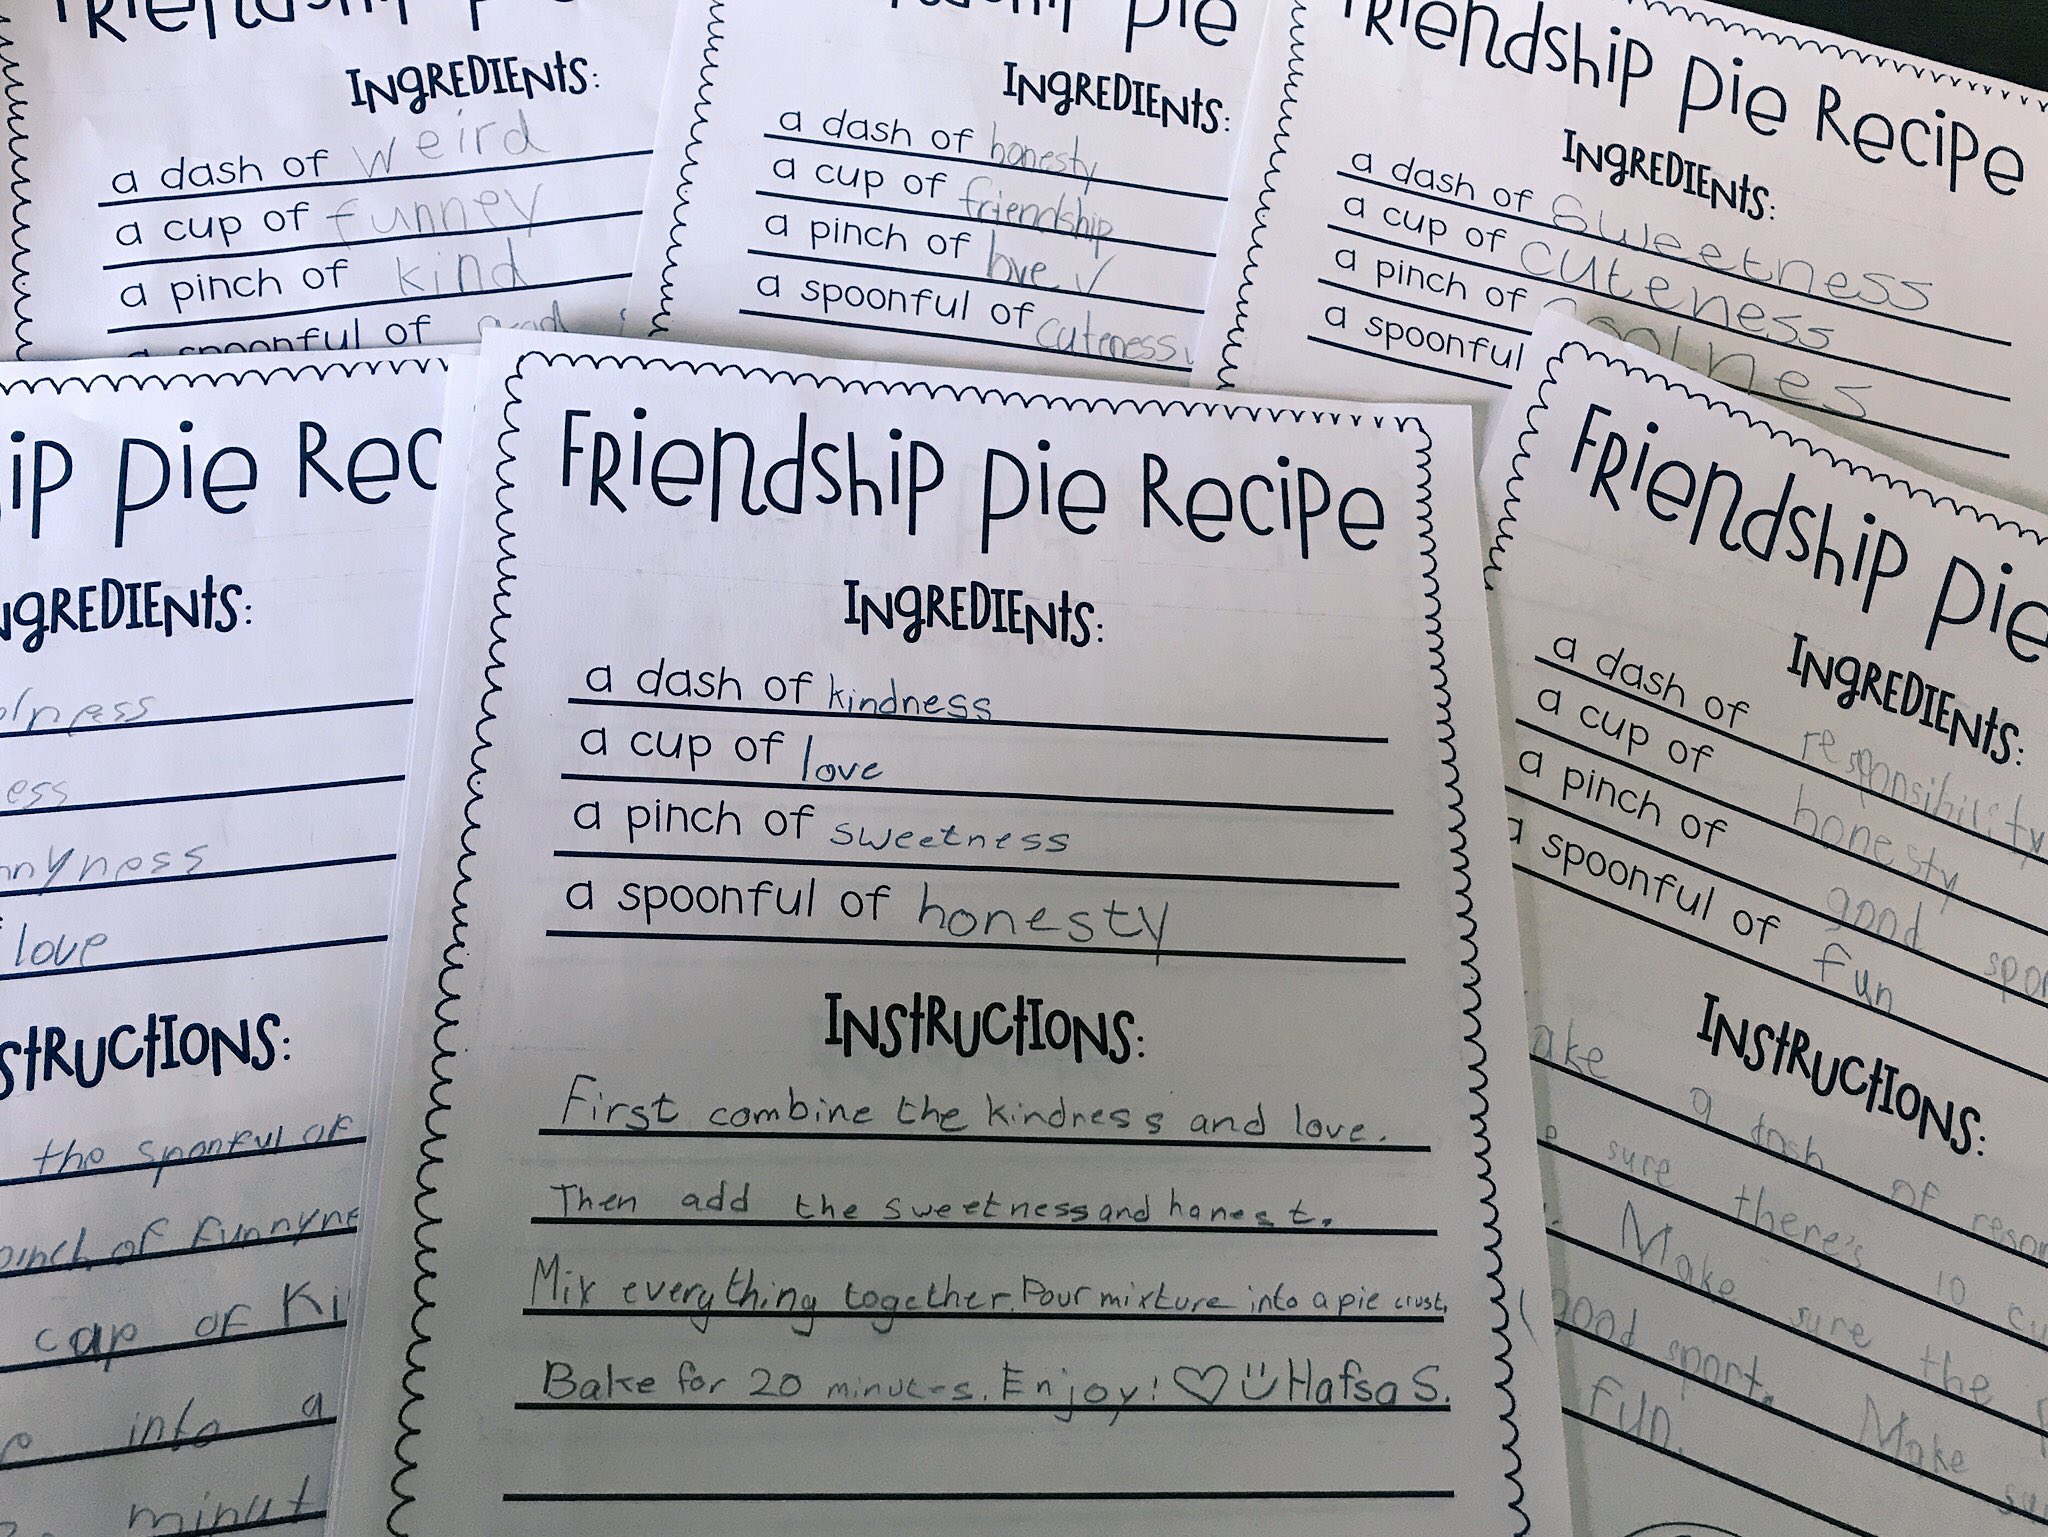 Friendship P
Ingredients:
a dash of weird
a cup of funney
a pinch of kind
a spoonful of good
Pie
Ingredients:
a dash of honesty
a cup of friendship
a pinch of love
a spoonful of cuteness
Friendship Pie Recipe
Ingredients:
a dash of Sweetness
a cup of cuteness
a pinch of coolnes
a spoonful
ip Pie Rec
ngredients:
olness
ess
nnyness
love
structions:
the sponful of
pinch of funnyne
cap of Ki
into a
minut
Friendship Pie Recipe
Ingredients:
a dash of kindness
a cup of love
a pinch of sweetness
a spoonful of honesty
Instructions:
First combine the kindness and love.
Then add the sweetness and honest.
Mix everything together. Pour mixture into a pie crust.
Bake for 20 minutes. Enjoy! ♡ Hafsa S.
Friendship Pie
Ingredients:
a dash of responsibility
a cup of honesty
a pinch of good spor
a spoonful of fun
Instructions:
ake a dash of respon
sure there's 10 cu
Make sure the
good sport. Make su
fun.